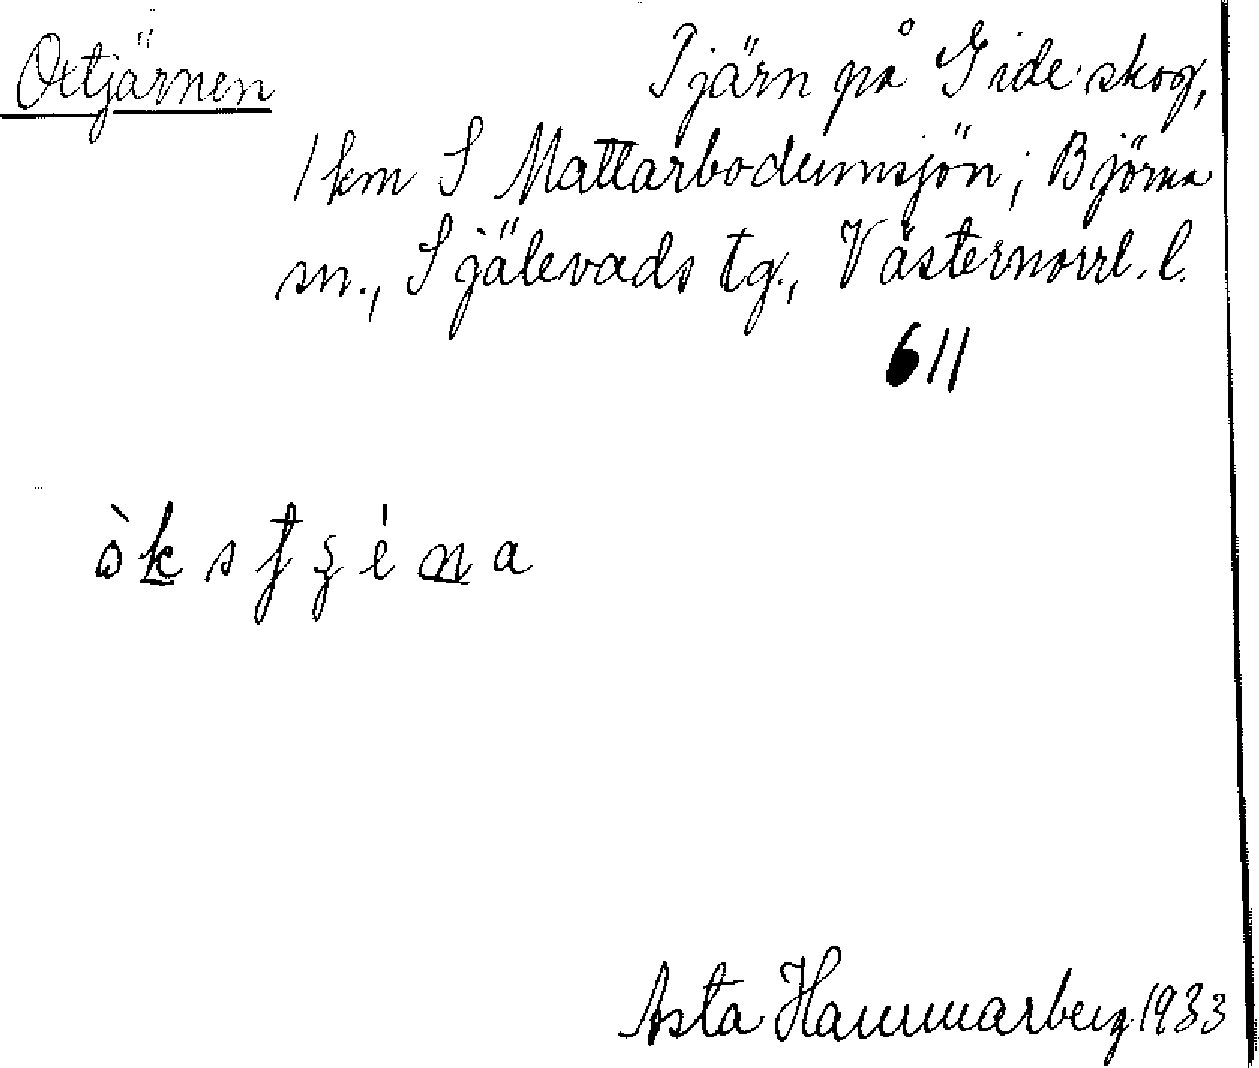 Oxtjärnen Tjärn på Gideskog,
1 km S Mattarbodumsjön; Björna
sn., Själevads tg., Västernorrl. l.
611
Asta Hammarberg 1933